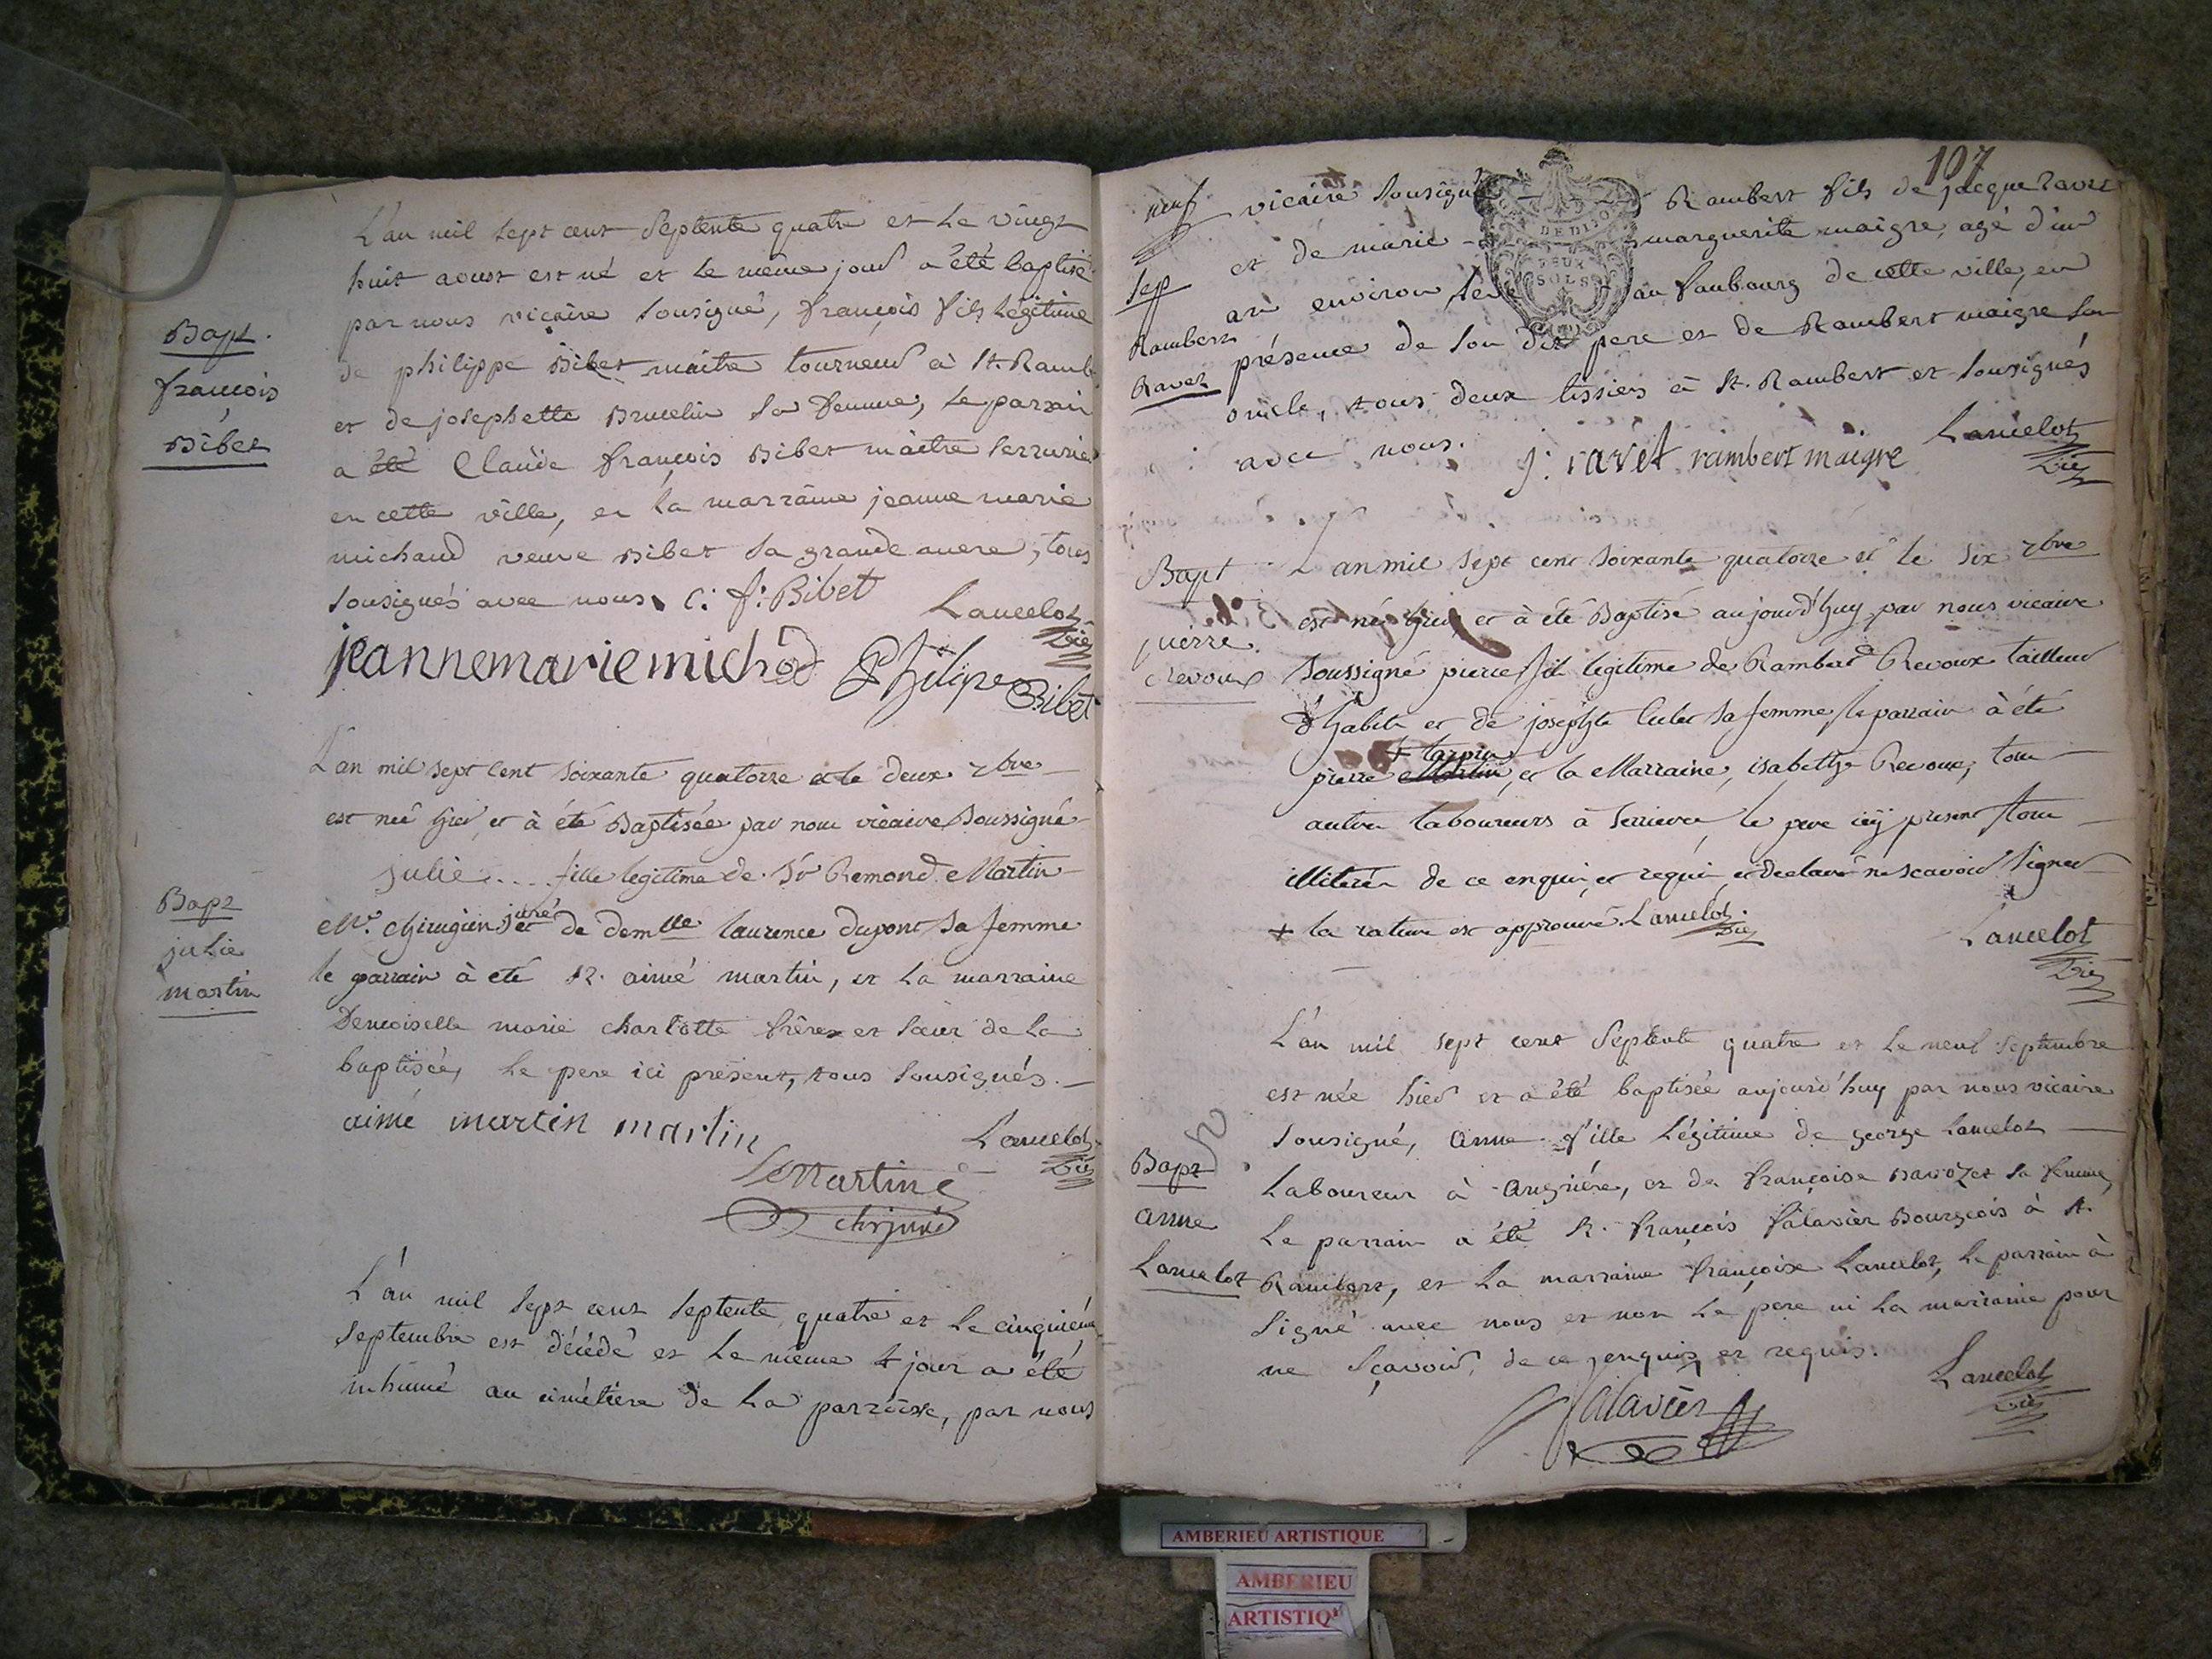 L'an mil sept cent septente quatre et le vingt
huit aoust est né et le même jour a été baptisé
par nous vicaire sousigné, françois fils légitime
de philippe Bibet maitre tourneur à St. Ramb
et de josephette Brucelin sa femme, le parrain
a été Claude françois Bibet maitre serrurier
en cette ville, et la marraine jeanne marie
michaud veuve Bibet sa grande mere, tous
sousignés avec nous. C: f: Bibet Lancelot
vic
jeannemariemichod Philipe Bibet
Bapt.
françois
Bibet
L'an mil sept cent soixante quatorze et le deux 7bre
est née hier et à été Baptisée par nous vicaire soussigné
julie.... fille legitime de Sr Remond Martin
Me. chirugien juré et de demlle laurence dupont sa femme
le parrain à eté Sr. aimé martin, et la marraine
Demoiselle marie charlotte frère et sœur de la
baptisée, le pere ici présent, tous sousignés.
aimé martin martin Lancelot
vic
Martine
chr juré
Bapt
julie
martin
L'an mil sept cent septente quatre et le cinquième
septembre est décédé et le même jour a été
inhumé au cimétiére de la parroisse, par nous
107
DEUX
SOLS
vicaire sousigné Rambert fils de jacque Ravet
et de marie marguerite maigre, agé d'un
an environ au faubourg de cette ville, en
présence de son dit pere et de Rambert maigre son
oncle, tous deux tissiers à St. Rambert et sousignés
avec nous. j: ravet rambert maigre Lancelot
vic
neuf
Sep
Rambert
Ravet
L'an mil sept cent soixante quatorze et le six 7bre
est né hier et à été Baptisé aujourd'huy par nous vicaire
soussigné pierre fil legitime de Rambert Revoux tailleur
d'habit et de josephte sa femme le parrain à été
+ tarpin
pierre Martin, et la Marraine, isabeth Revoux, tou
autre laboureurs à Serrieres le pere icy present tous
illiterés de ce enquis et requis et declaré ne scavoir signer
+ la rature est approuvé. Lancelot vic
Lancelot
vic
Bapt
pierre
revoux
L'an mil sept cent septente quatre et le neuf septembre
est née hier et a été baptisée aujourd'huy par nous vicaire
sousigné, anne fille légitime de george Lancelot
Laboureur à Angriére, et de françoise Barozet sa femme,
Le parrain a été Sr. françois falavier Bourgeois à St.
Rambert, et la marraine françoise Lancelot, le parrain à
signé avec nous et non le pere ni la marraine pour
ne sçavoir, de ce enquis et requis.
falavier
Lancelot
vic
Bapt
anne
Lancelot
AMBERIEU ARTISTIQUE
AMBERIEU
ARTISTIQ